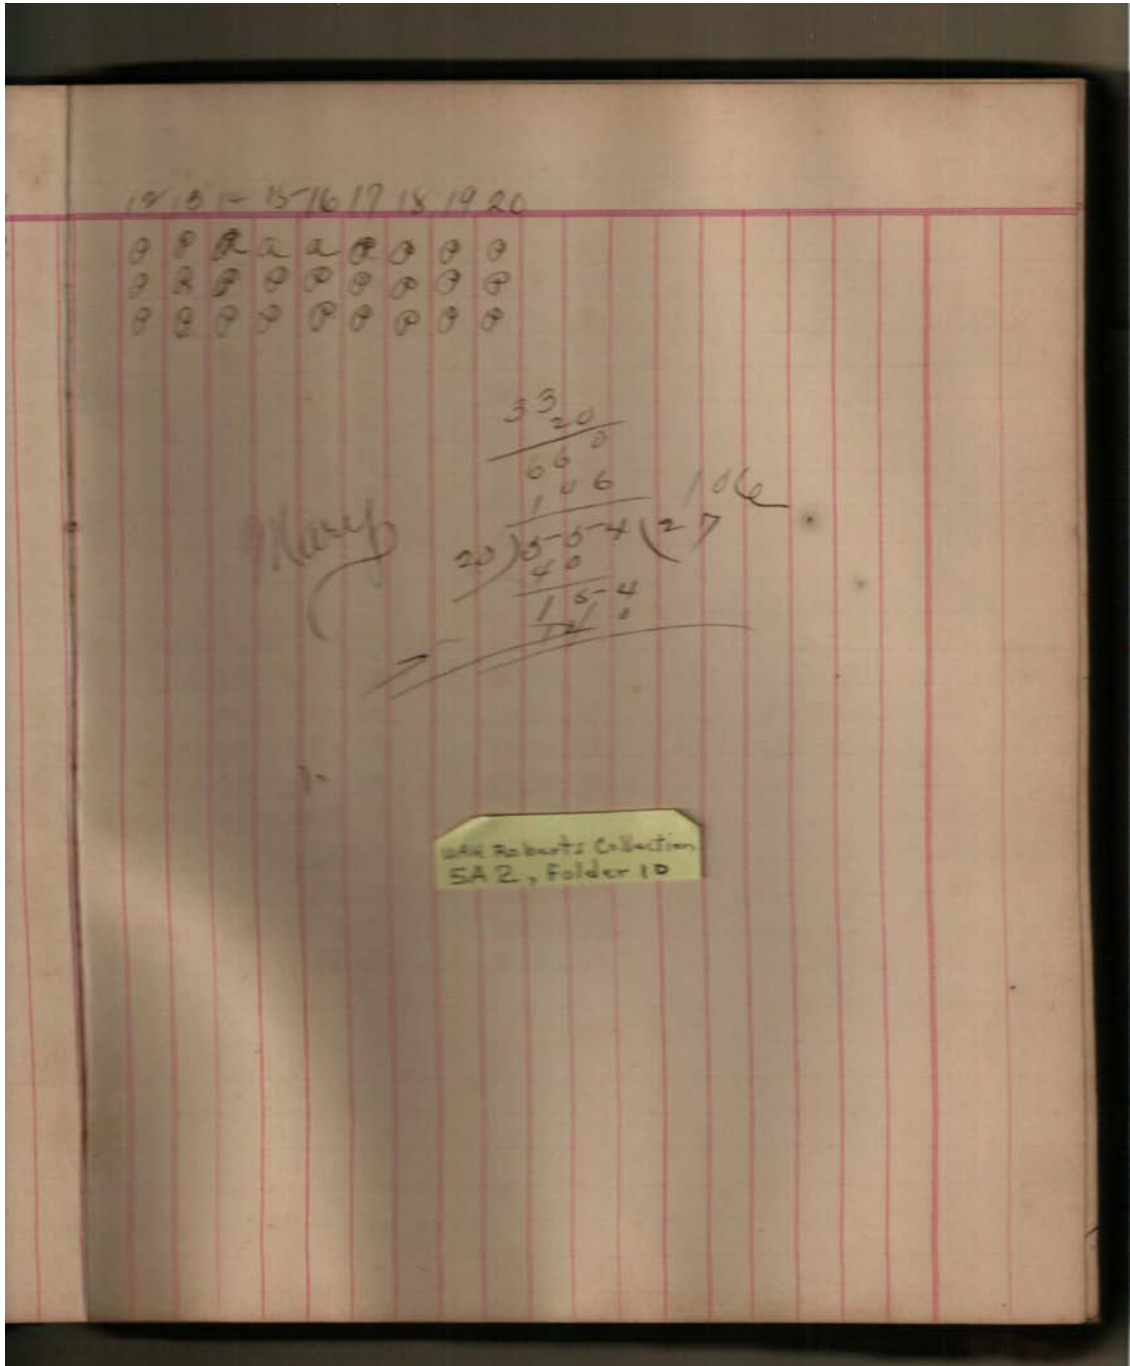 12 13 1- 15 16 17 18 19 20
P P P a a P P P P
P a P P P P P P P
P P P P P P P P P
33
20
660
106
106
20)554(27
40
154
Mary
UAH Roberts Collection
5A2, Folder 10